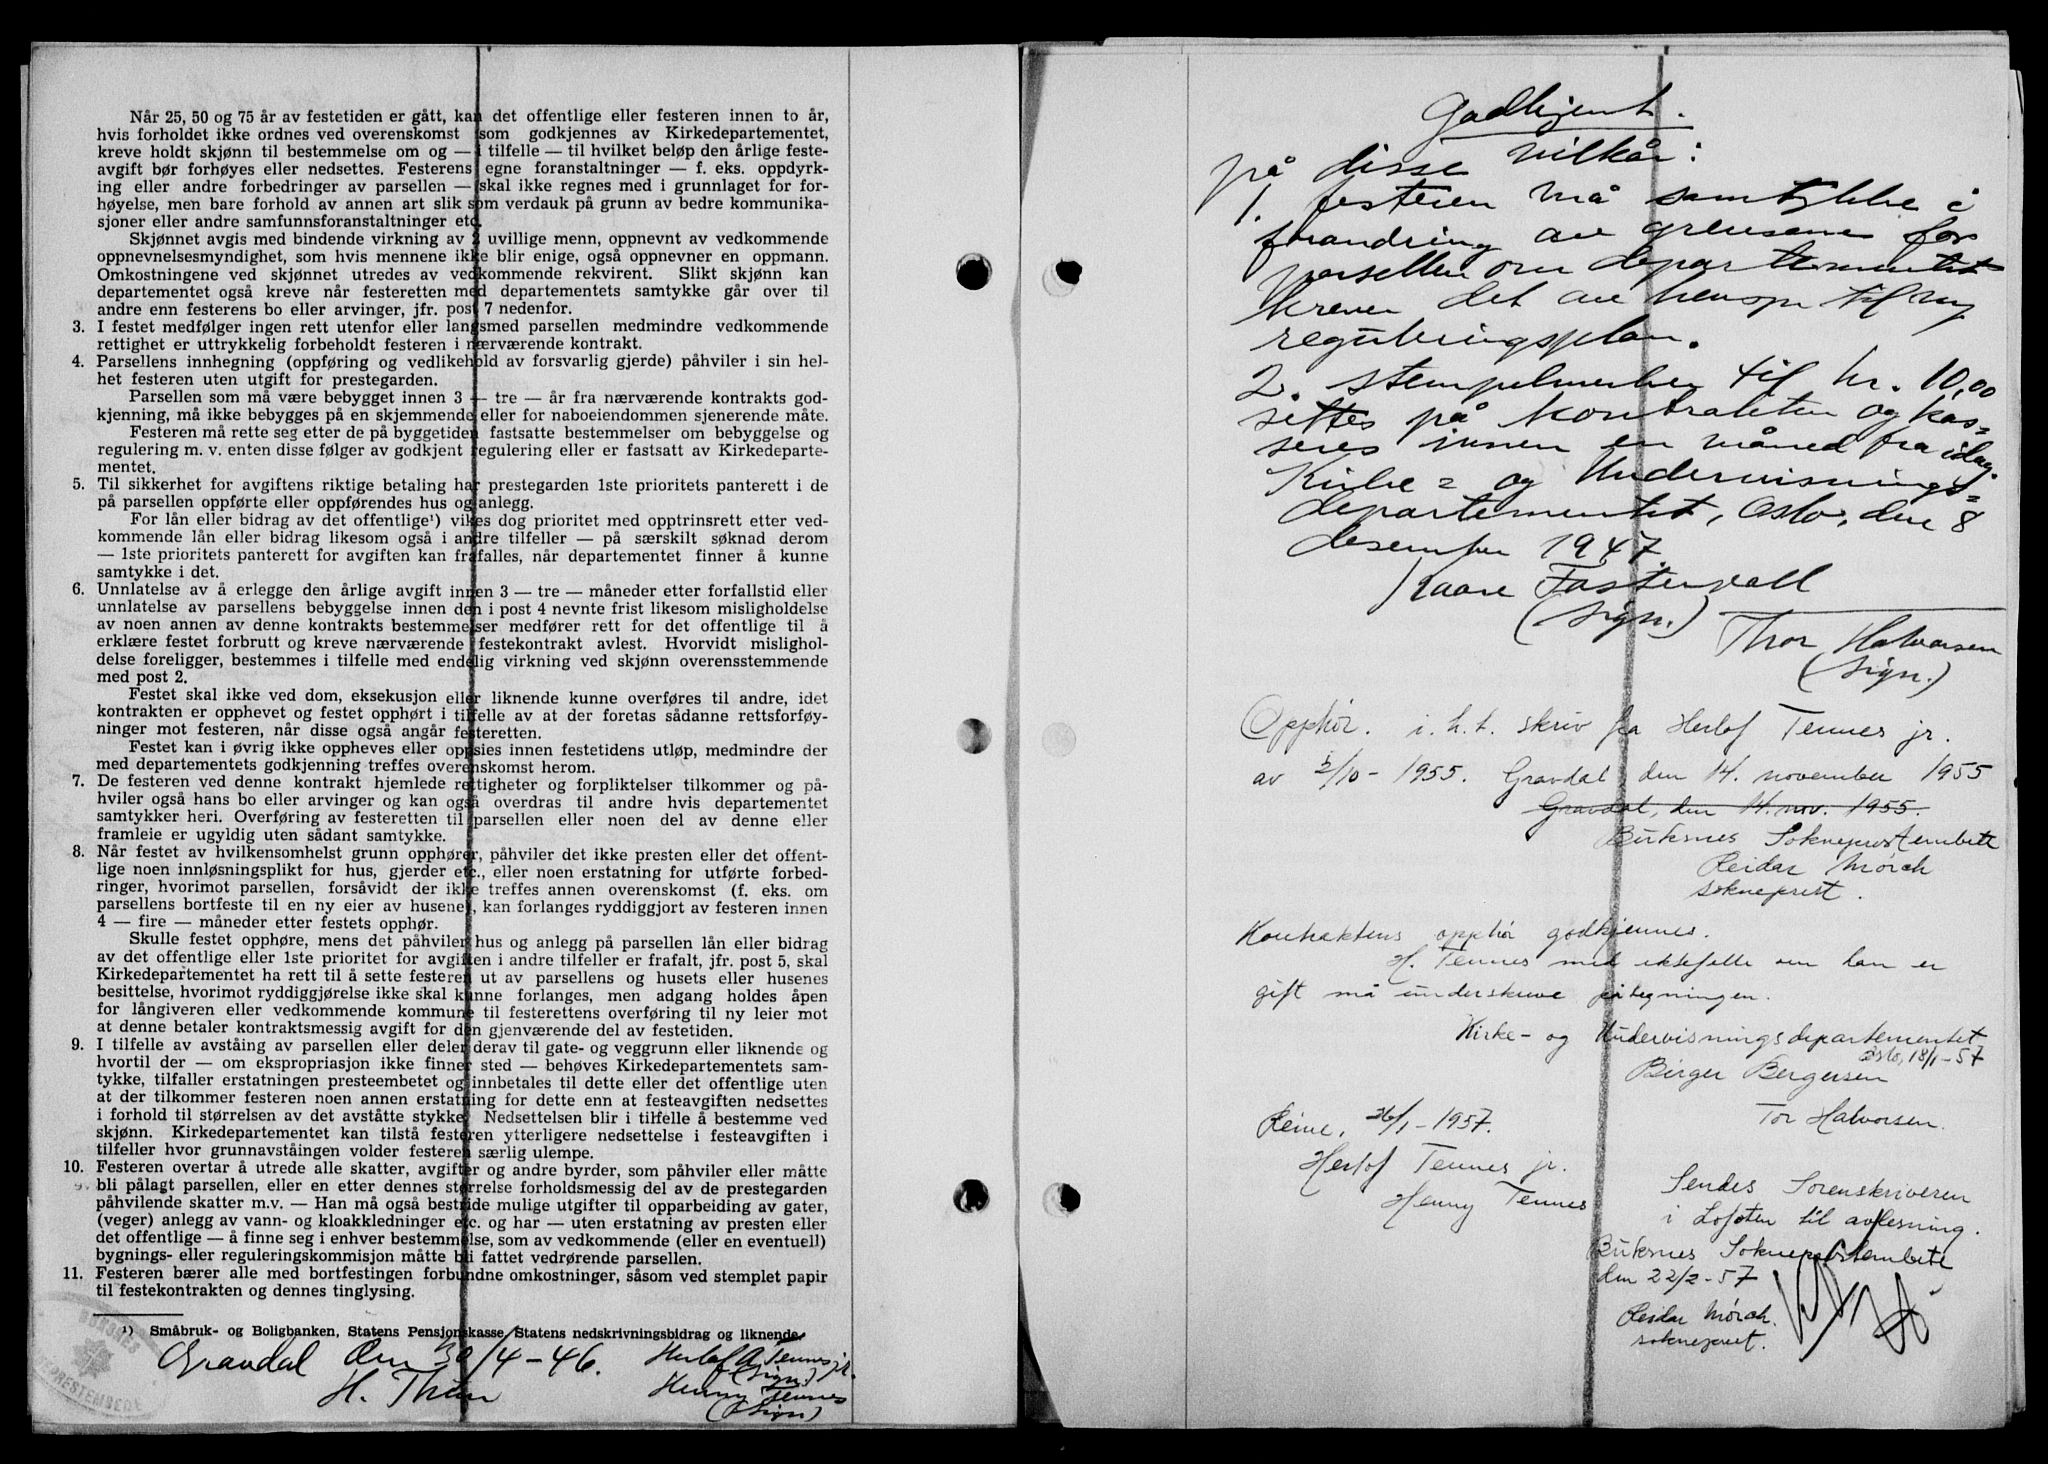 Når 25, 50 og 75 år av festetiden er gått, kan det offentlige eller festeren innen to år,
hvis forholdet ikke ordnes ved overenskomst som godkjennes av Kirkedepartementet,
kreve holdt skjønn til bestemmelse om og — i tilfelle — til hvilket beløp den årlige feste-
avgift bør forhøyes eller nedsettes. Festerens egne foranstaltninger — f. eks. oppdyrk-
ing eller andre forbedringer av parsellen — skal ikke regnes med i grunnlaget for for-
høyelse, men bare forhold av annen art slik som verdauk på grunn av bedre kommunika-
sjoner eller andre samfunnsforanstaltninger etc.
Skjønnet avgis med bindende virkning av 2 uvillige menn, oppnevnt av vedkommende
oppnevnelsesmyndighet, som hvis mennene ikke blir enige, også oppnevner en oppmann.
Omkostningene ved skjønnet utredes av vedkommende rekvirent. Slikt skjønn kan
departementet også kreve når festeretten med departementets samtykke går over til
andre enn festerens bo eller arvinger, jfr. post 7 nedenfor.
3. I festet medfølger ingen rett utenfor eller langsmed parsellen medmindre vedkommende
rettighet er uttrykkelig forbeholdt festeren i nærværende kontrakt.
4. Parsellens innhegning (oppføring og vedlikehold av forsvarlig gjerde) påhviler i sin hel-
het festeren uten utgift for prestegarden.
Parsellen som må være bebygget innen 3 — tre — år fra nærværende kontrakts god-
kjenning, må ikke bebygges på en skjemmende eller for naboeiendommen sjenerende måte.
Festeren må rette seg etter de på byggetiden fastsatte bestemmelser om bebyggelse og
regulering m. v. enten disse følger av godkjent regulering eller er fastsatt av Kirkedeparte-
mentet.
5. Til sikkerhet for avgiftens riktige betaling har prestegarden 1ste prioritets panterett i de
på parsellen oppførte eller oppførendes hus og anlegg.
For lån eller bidrag av det offentlige¹) vikes dog prioritet med opptrinsrett etter ved-
kommende lån eller bidrag likesom også i andre tilfeller — på særskilt søknad derom
— 1ste prioritets panterett for avgiften kan frafalles, når departementet finner å kunne
samtykke i det.
6. Unnlatelse av å erlegge den årlige avgift innen 3 — tre — måneder etter forfallstid eller
unnlatelse av parsellens bebyggelse innen den i post 4 nevnte frist likesom misligholdelse
av noen annen av denne kontrakts bestemmelser medfører rett for det offentlige til å
erklære festet forbrutt og kreve nærværende festekontrakt avlest. Hvorvidt misligh​ol-
delse foreligger, bestemmes i tilfelle med endelig virkning ved skjønn overensstemmende
med post 2.
Festet skal ikke ved dom, eksekusjon eller liknende kunne overføres til andre, idet
kontrakten er opphevet og festet opphørt i tilfelle av at der foretas sådanne rettsforføy-
ninger mot festeren, når disse også angår festeretten.
Festet kan i øvrig ikke oppheves eller oppsies innen festetidens utløp, medmindre der
med departementets godkjenning treffes overenskomst herom.
7. De festeren ved denne kontrakt hjemlede rettigheter og forpliktelser tilkommer og på-
hviler også hans bo eller arvinger og kan også overdras til andre hvis departementet
samtykker heri. Overføring av festeretten til parsellen eller noen del av denne eller
framleie er ugyldig uten sådant samtykke.
8. Når festet av hvilkensomhelst grunn opphører, påhviler det ikke presten eller det offent-
lige noen innløsningsplikt for hus, gjerder etc., eller noen erstatning for utførte forbed-
ringer, hvorimot parsellen, forsåvidt der ikke treffes annen overenskomst (f. eks. om
parsellens bortfeste til en ny eier av husene), kan forlanges ryddiggjort av festeren innen
4 — fire — måneder etter festets opphør.
Skulle festet opphøre, mens det påhviler hus og anlegg på parsellen lån eller bidrag
av det offentlige eller 1ste prioritet for avgiften i andre tilfeller er frafalt, jfr. post 5, skal
Kirkedepartementet ha rett til å sette festeren ut av parsellens og husets eller husenes
besittelse, hvorimot ryddiggjørelse ikke skal kunne forlanges, men adgang holdes åpen
for långiveren eller vedkommende kommune til festerettens overføring til ny leier mot
at denne betaler kontraktsmessig avgift for den gjenværende del av festetiden.
9. I tilfelle av avståing av parsellen eller deler derav til gate- og veggrunn eller liknende og
hvortil der — om ekspropriasjon ikke finner sted — behøves Kirkedepartementets sam-
tykke, tilfaller erstatningen presteembetet og innbetales til dette eller det offentlige uten
at der tilkommer festeren noen annen erstatning for dette enn at festeavgiften nedsettes
i forhold til størrelsen av det avståtte stykke. Nedsettelsen blir i tilfelle å bestemme ved
skjønn. Kirkedepartementet kan tilstå festeren ytterligere nedsettelse i festeavgiften i
tilfeller hvor grunnavståingen volder festeren særlig ulempe.
10. Festeren overtar å utrede alle skatter, avgifter og andre byrder, som påhviler eller måtte
bli pålagt parsellen, eller en etter dennes størrelse forholdsmessig del av de prestegarden
påhvilende skatter m.v. — Han må også bestride mulige utgifter til opparbeiding av gater,
(veger) anlegg av vann- og kloakkledninger etc. og har — uten erstatning av presten eller
det offentlige — å finne seg i enhver bestemmelse, som av vedkommende (eller en eventuell)
bygnings- eller reguleringskommisjon måtte bli fattet vedrørende parsellen.
11. Festeren bærer alle med bortfestingen forbundne omkostninger, såsom ved stemplet papir
til festekontrakten og dennes tinglysing.
¹) Småbruk- og Boligbanken, Statens Pensjonskasse, Statens nedskrivningsbidrag og liknende.
Gravdal den 30/4-46.
H. Thun
Herlof A Tennes jr.
(Sign.)
Henny Tennes
(Sign)
Godkjent.
på disse vilkår:
1. festeren må samtykke i
forandring av grensene for
parsellen om departementet
krever det av hensyn til ny
reguleringsplan.
2. stempelmerker til kr. 10,00
settes på kontrakten og kas=
seres innen en måned fra idag.
Kirke= og Undervisnings=
departementet, Oslo, den 8
desember 1947.
Kaare Fostervoll
(sign.)
Thor Halvorsen
(sign.)
Opphør. i.h.t. skriv fra Herlof Tennes jr.
av 5/10-1955. Gravdal den 14. november 1955
Gravdal, den 14. nov. 1955.
Buksnes Sokneprestembete
Reidar Mørch
sokneprest.
Kontraktens opphør godkjennes.
H. Tennes med ektefelle om han er
gift må underskrive påtegningen.
Kirke- og Undervisningsdepartementet
Oslo, 18/1-57
Birger Bergersen
Tor Halvorsen.
Reine, 26/1-1957.
Herlof Tennes jr.
Henny Tennes
Sendes Sorenskriveren
i Lofoten til avlesning.
Buksnes Sokneprestembete
den 22/2-57
Reidar Mørch.
sokneprest.